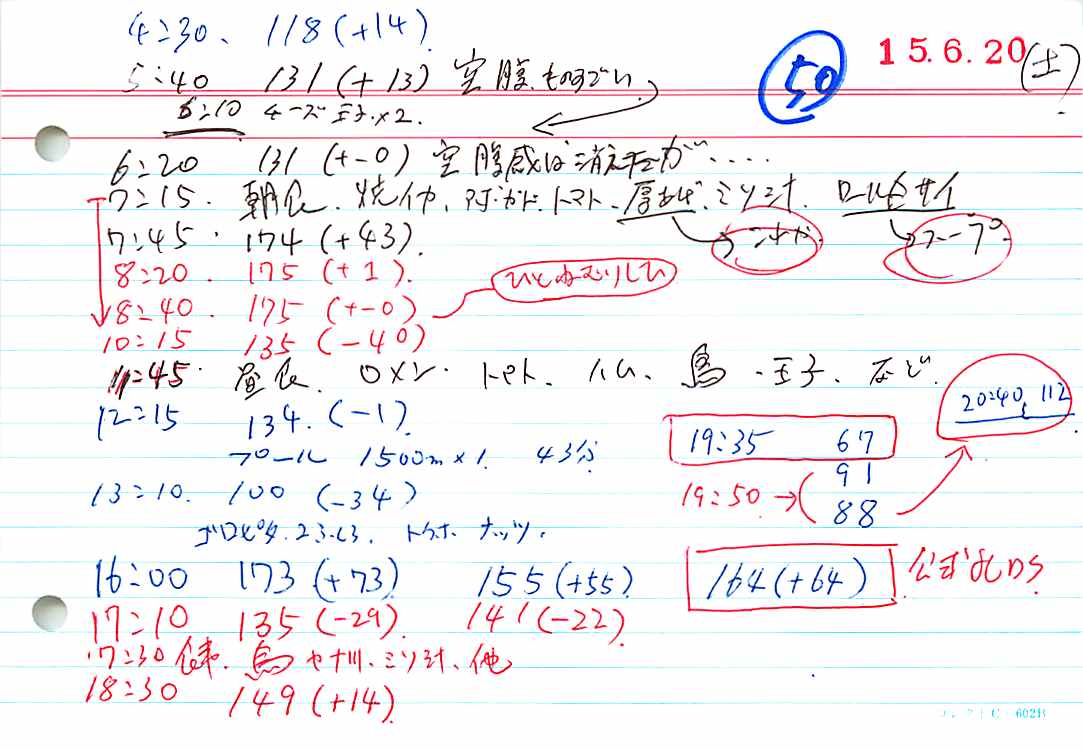 4:30、 118(+14)
50
15.6.20(土)
5:40 131(+13) 空腹ものすごい
6:10 チーズ 玉子×2.
6:20 131(+-0) 空腹感は消えたが....
7:15. 朝食、焼イカ、アボガド、トマト、厚あげ、ミソ汁、ロールキャサイ
スープ
7:45. 174(+43).
8:20. 175(+1).
8:40. 175(+-0)
10:15 135(-40)
11:45. 昼食、ロメン. トマト、ハム、鳥、玉子、など.
12:15 134.(-1).
プール 1500m×1. 43分
13:10. 100(-34)
ナッツ.
16:00 173(+73) 155(+55)
164(+64) 公式
17:10 135(-29). 141(-22).
17:30 食事. 鳥 ミソ汁、他
18:30 149(+14)
19:35 67
19:50→ 91
88
20:40 112
602B